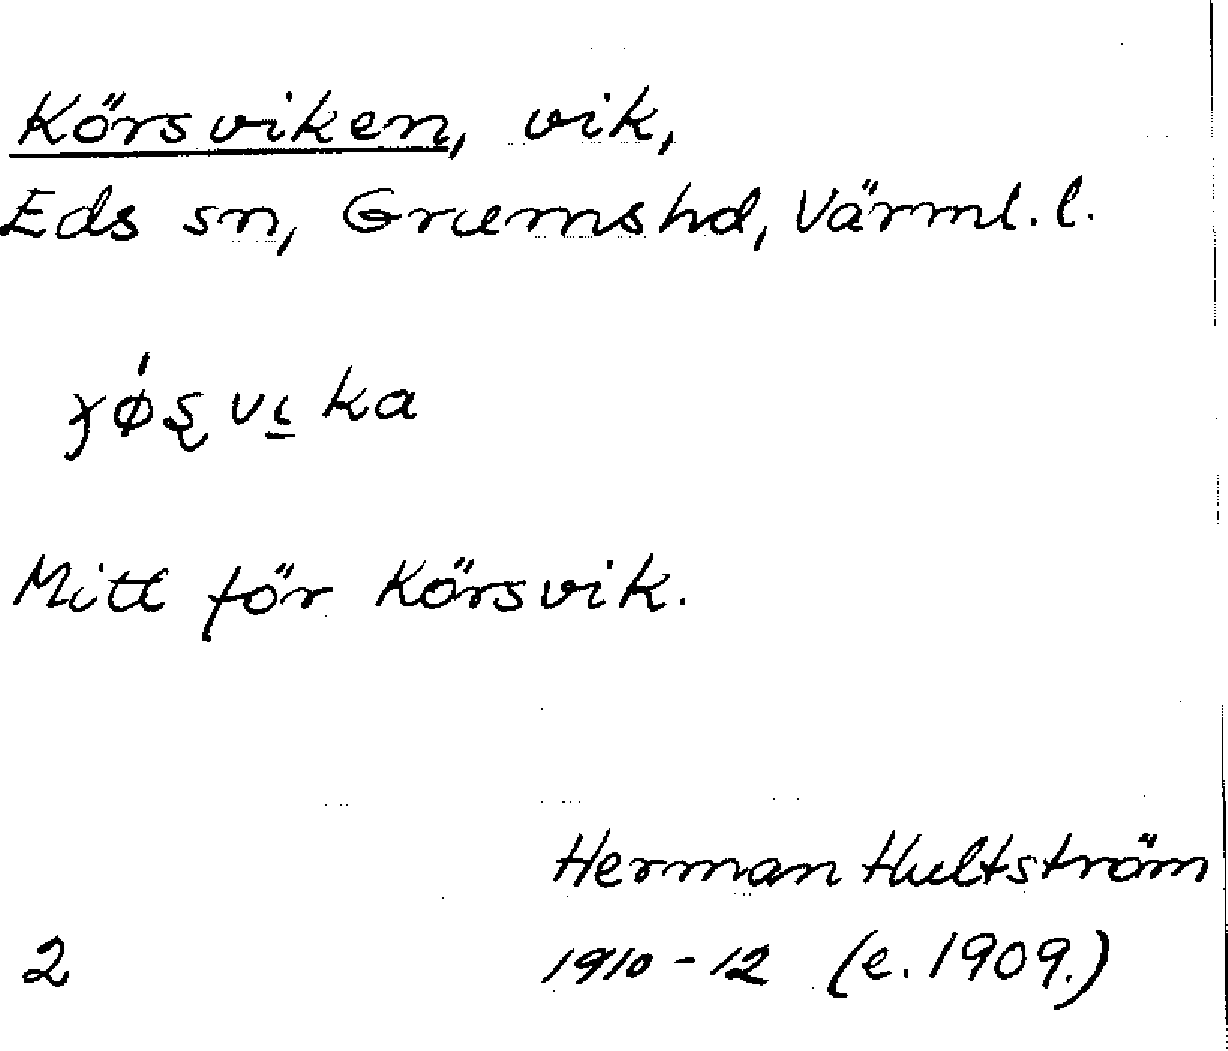 Körsviken, vik,
Eds sn, Grumshd, Värml. l.
Mitt för Körsvik.
Herman Hultström
2 1910-12 (e. 1909.)